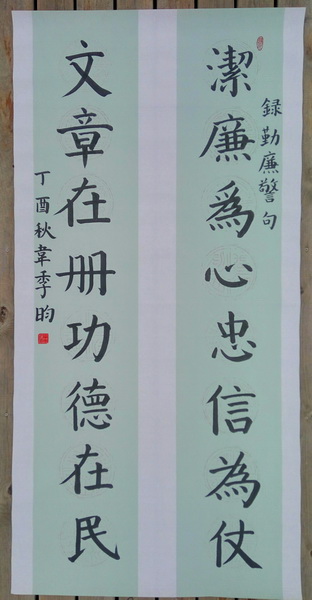 錄勤廉警句
潔廉爲心忠信為仗
文章在册功德在民
丁酉秋韋季昀